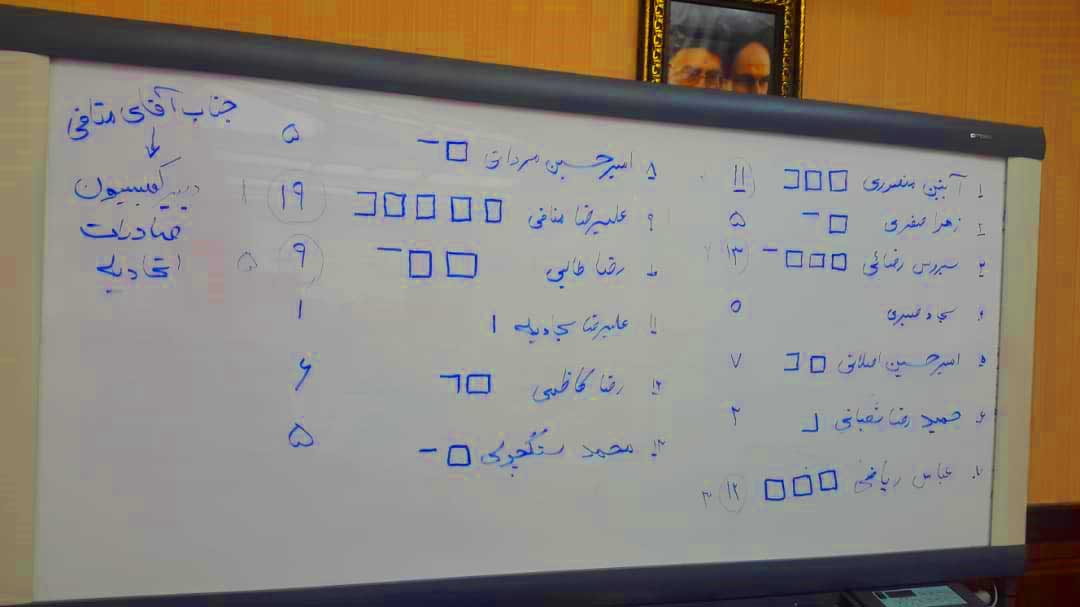 ۱ آبتین منصوری ۱۱
۲ زهرا صفری ۵
۳ سیروس رضائی ۱۳
۴ سجاد صبری ۰
۵ امیرحسین اصلانی ۷
۶ حمید رضا شعبانی ۲
۷ عباس ریاضی ۱۲ ۳
۸ امیرحسین مردانی ۵
۹ علیرضا منافی ۱۹ ۱
۱۰ رضا طالبی ۹ ۵
۱۱ علیرضا سجادیه ۱ ۱
۱۲ رضا کاظمی ۶
۱۳ محمد ۵
جناب آقای منافی
دبیر کمیسیون
صادرات
اتحادیه